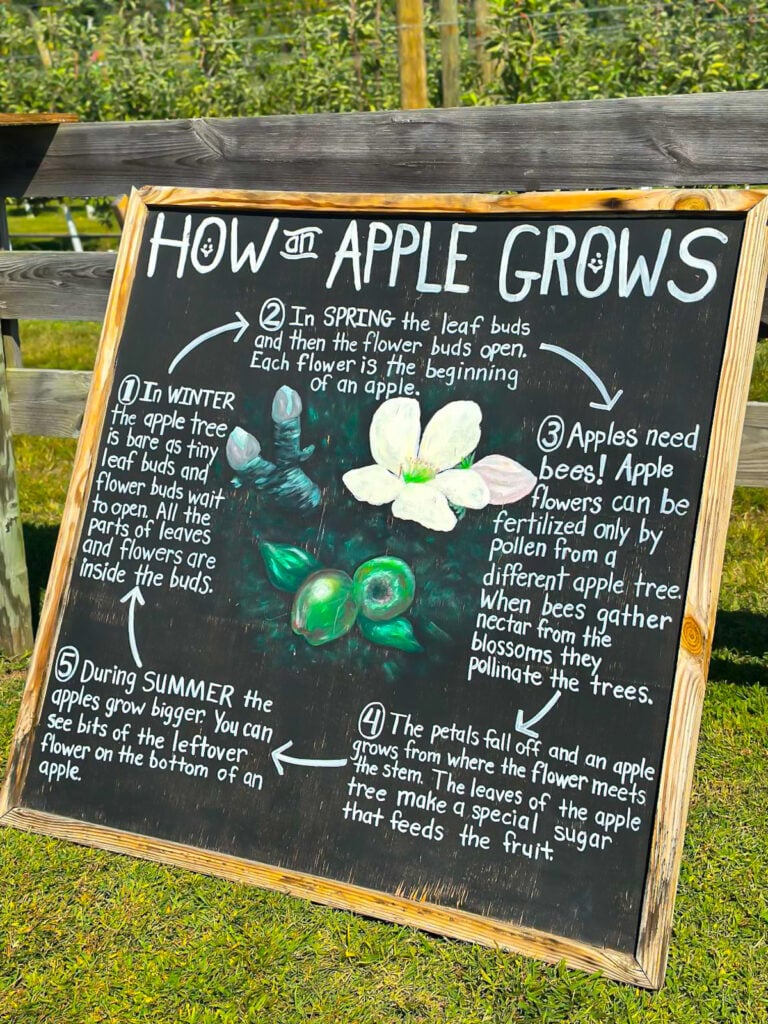 HOW an APPLE GROWS
① In WINTER
the apple tree
is bare as tiny
leaf buds and
flower buds wait
to open. All the
parts of leaves
and flowers are
inside the buds.
② In SPRING the leaf buds
and then the flower buds open.
Each flower is the beginning
of an apple.
③ Apples need
bees! Apple
flowers can be
fertilized only by
pollen from a
different apple tree.
When bees gather
nectar from the
blossoms they
pollinate the trees.
④ The petals fall off and an apple
grows from where the flower meets
the stem. The leaves of the apple
tree make a special sugar
that feeds the fruit.
⑤ During SUMMER the
apples grow bigger. You can
see bits of the leftover
flower on the bottom of an
apple.